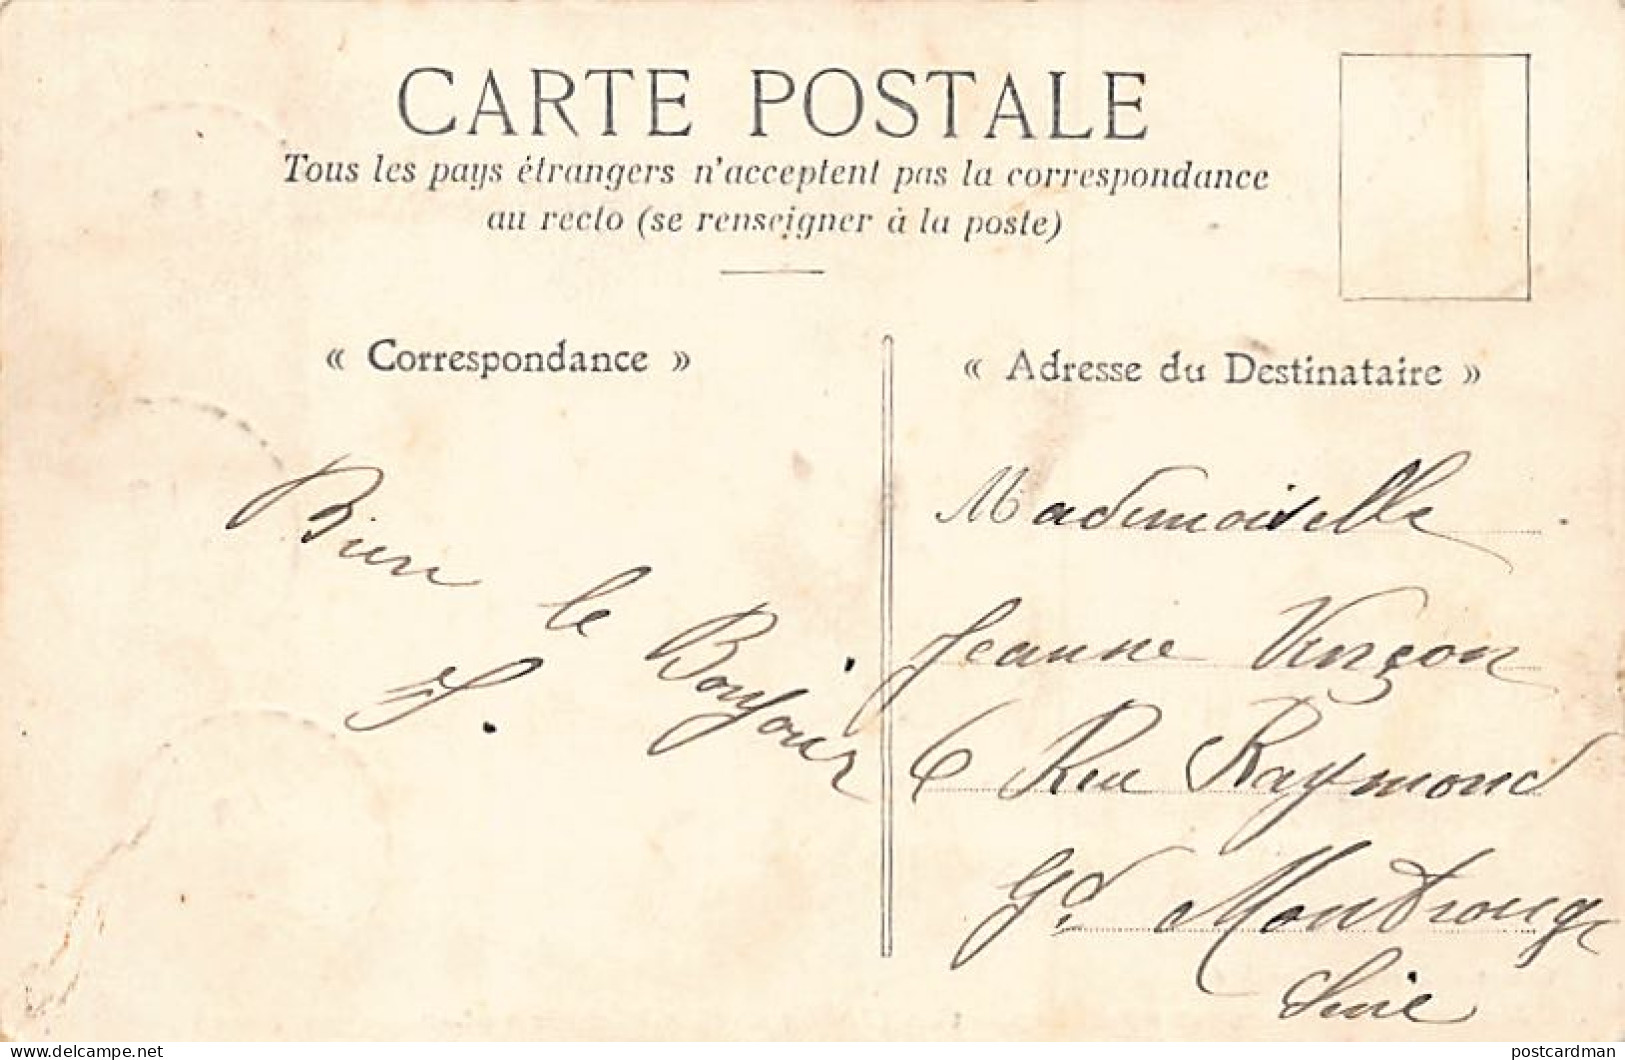 CARTE POSTALE
Tous les pays étrangers n'acceptent pas la correspondance
au recto (se renseigner à la poste)
« Correspondance »
Bien le Bonjour
« Adresse du Destinataire »
Mademoiselle
Jeanne Vinçon
6 Rue Raymond
Gd Montrouge
Seine
delcampe.net
postcardman